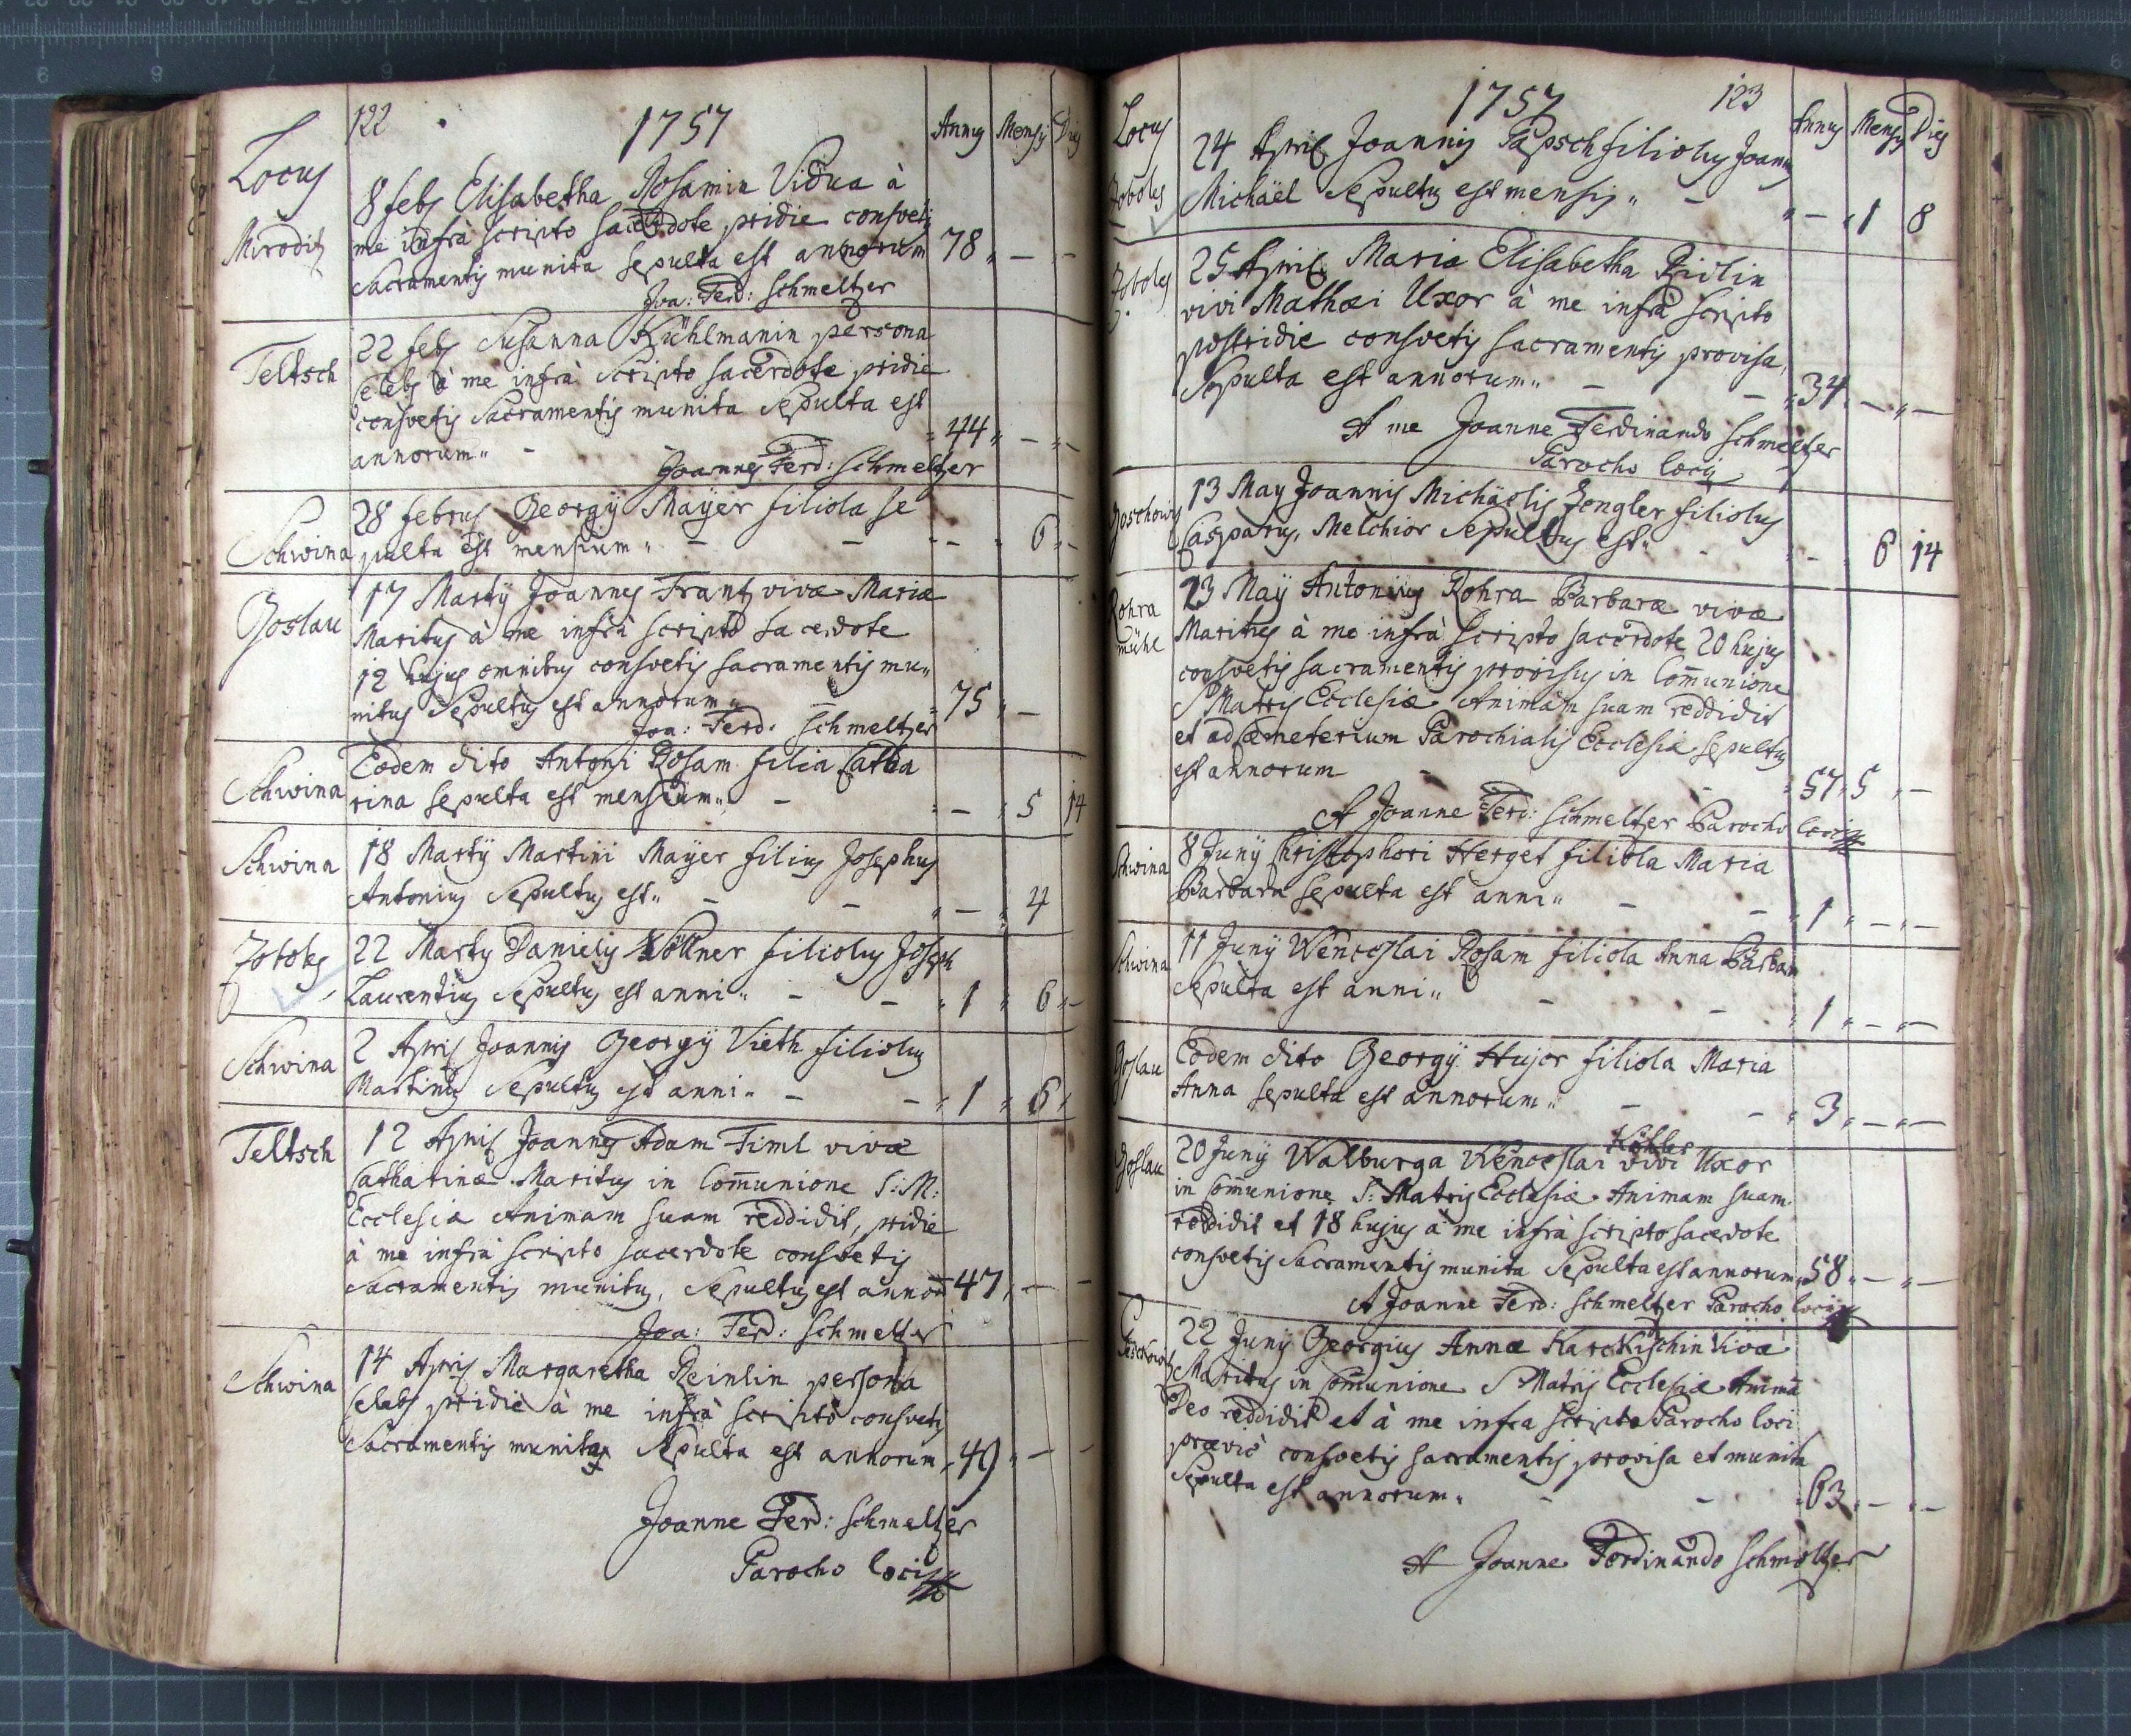 122
1757
Locus
Annus Mensis Dies
Miroditz
8 febr Elisabetha Rosamin Vidua à
me infrà scripto sacerdote pridie consvetis
Sacramentis munita sepulta est annorum 78 „ — —
Joa: Ferd: Schmeltzer
Teltsch
22 feb Susanna Kühlmanin persona
celebs à me infrà scripto sacerdote pridie
consvetis Sacramentis munita sepulta est
annorum „ — „ 44 „ — „ —
Joannes Ferd: Schmeltzer
Schwina
28 februs Georgÿ Mayer filiola se
pulta est mensium „ — — — 6 „ —
Goslau
17 Martÿ Joannes Frantz vivæ Mariæ
Maritus à me infrà scripto sacerdote
12 hujus omnibus consvetis sacramentis mu„
nitus Sepultus est annorum „ — 75 „ —
Joa: Ferd: Schmeltzer
Schwina
Eodem dito Antonji Rosam filia Catha
rina sepulta est mensium „ — — 5 14
Schwina
18 Martÿ Martini Mayer filius Josephus
Antonius Sepultus est „ — — „ — „ 4
Zoboles
22 Marty Danielis Köllner filiolus Joseph
Laurentius Sepultus est anni „ — — „ 1 „ 6 „ —
Schwina
2 April Joannis Georgÿ Vieth filiolus
Martinus Sepultus est anni „ — — „ 1 „ 6 „
Teltsch
12 April Joannes Adam Fiml vivæ
Catharinæ Maritus in Com̄unione S: M:
Ecclesiæ Animam suam reddidit, pridie
à me infrà scripto sacerdote consvetis
sacramentis munitus, Sepultus est annorū 47 „ — —
Joa: Ferd: Schmeltzer
Schwina
14 April Margaretha Reinlin persona
celebs pridie à me infrà scripto consvetis
Sacramentis munita Sepulta est annorum „ 49 „ — —
Joanne Ferd: Schmeltzer
Parocho loci
1757
123
Locus
Annus Mensis Dies
Zoboles
24 April Joannis Papsch filiolus Joann
Michäel Sepultus est mensis „ — „ — „ 1 8
Zoboles
25 April Maria Elisabetha Ridlin
vivi Mathæi Uxor à me infrà scripto
postridie consvetis sacramentis provisa,
Sepulta est annorum „ — — „ 34 „ — „ —
A me Joanne Ferdinando Schmeltzer
Parocho loci
Goschowitz
13 May Joannis Michäelis Zengler filiolus
Casparus, Melchior Sepultus est „ — — 6 14
Rohra
mühl
23 Maÿ Antonius Rohra Barbaræ vivæ
Maritus à me infrà scripto sacerdote 20 hujus
consvetis sacramentis provisus in Com̄unione
S Matris Ecclesiæ Animam suam reddidit
et ad Cæmeterium Parochialis Ecclesiæ sepultus
est annorum — — „ 57 „ 5 „ —
A Joanne Ferd: Schmeltzer Parocho loci
Schwina
8 Junÿ Christophori Herget filiola Maria
Barbara sepulta est anni „ — — „ 1 „ — „ —
Schwina
11 Junÿ Wenceslai Rosam filiola Anna Barbara
Sepulta est anni „ — — „ 1 „ — „ —
Goslau
Eodem dito Georgÿ Hujer filiola Maria
Anna sepulta est annorum „ — — „ 3 „ — „ —
Goslau
Köhler
20 Junÿ Walburga Wenceslai vivi Uxor
in Com̄unione S: Matris Ecclesiæ Animam suam
reddidit et 18 hujus à me infrà scripto sacerdote
consvetis Sacramentis munita Sepulta est annorum „ 58 „ — „ —
A Joanne Ferd: Schmeltzer Parocho loci
22 Junÿ Georgius Annæ vivæ
Maritus in Com̄unione S Matris Ecclesiæ Animā
Deo reddidit et à me infra scripto Parocho loci
prævio consvetis sacramentis provisa et munita
Sepulta est annorum „ — — „ 63 „ — „ —
A Joanne Ferdinando Schmeltzer